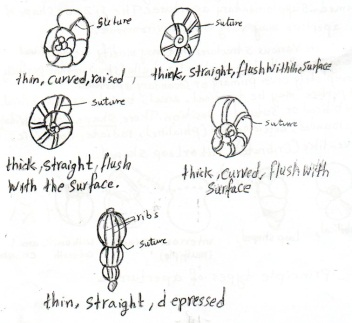 suture
suture
thin, curved, raised,
thick, straight, flush with the surface
suture
suture
thick, straight, flush
with the surface.
thick, curved, flush with
surface
ribs
suture
thin, straight, depressed